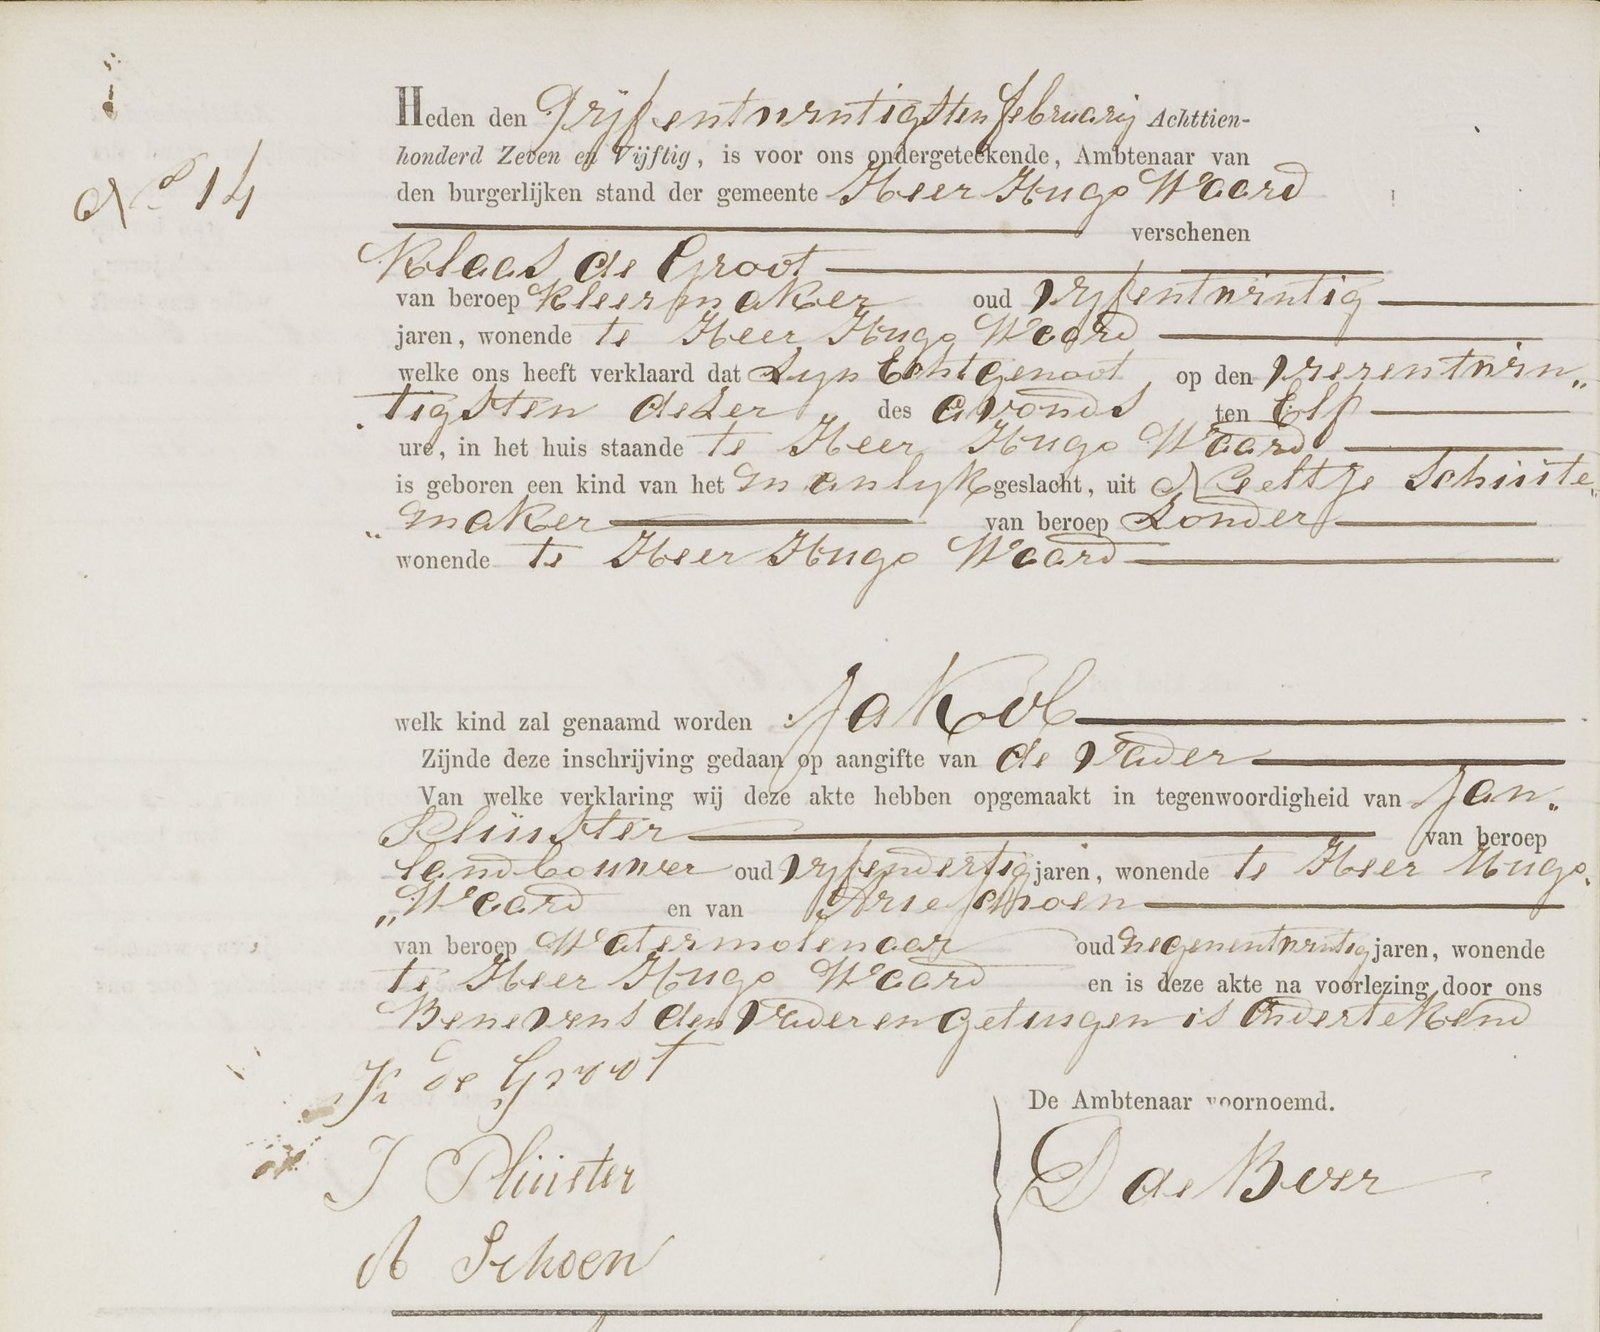 No 14
Heden den Vyfentwintigsten february Achttien-
honderd Zeven en Vijftig, is voor ons ondergeteekende, Ambtenaar van
den burgerlijken stand der gemeente Heer Hugo Waard
verschenen
Klaas de Groot
van beroep Kleermaker oud vyfentwintig
jaren, wonende te Heer Hugo Waard
welke ons heeft verklaard dat Zyn Echtgenoot op den vierentwin„
tigsten dezer des avonds ten Elf
ure, in het huis staande te Heer Hugo Waard
is geboren een kind van het manlyk geslacht, uit Neeltje Schuite„
„maker van beroep Zonder
wonende te Heer Hugo Waard
welk kind zal genaamd worden Jakob
Zijnde deze inschrijving gedaan op aangifte van de vader
Van welke verklaring wij deze akte hebben opgemaakt in tegenwoordigheid van Jan„
Pluister van beroep
landbouwer oud vyfendertig jaren, wonende te Heer Hugo„
„Waard en van Arie Schoen
van beroep Watermolenaar oud negenentwintig jaren, wonende
te Heer Hugo Waard en is deze akte na voorlezing door ons
Benevens den vader en getuigen is Ondertekend
K de Groot
De Ambtenaar voornoemd.
J Plüister
D de Boer
A Schoen